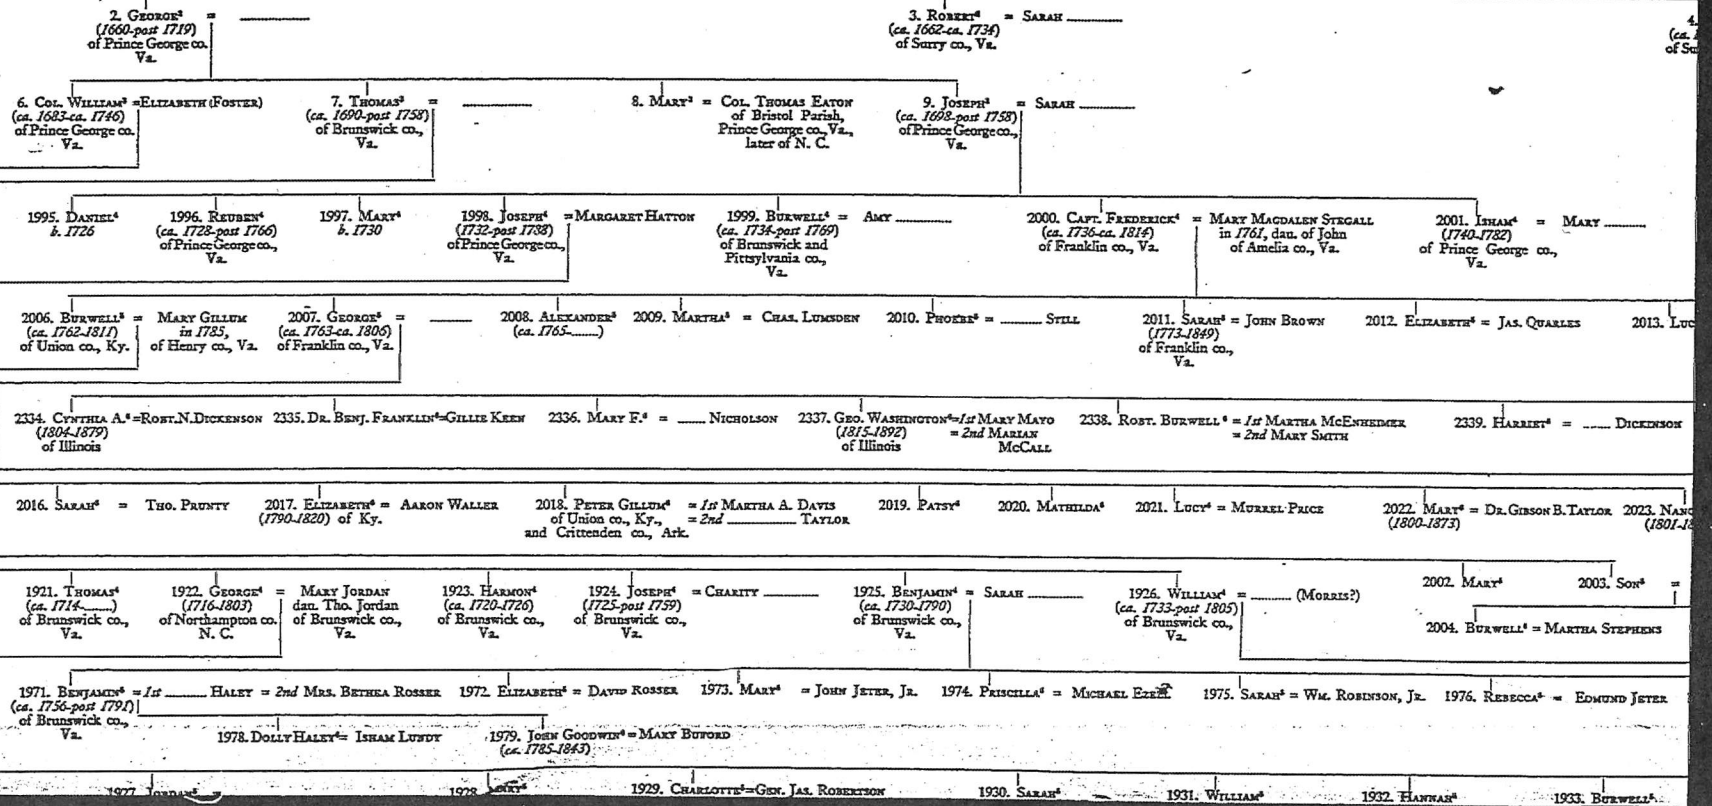 2. GEORGE² = ________
(1660-post 1719)
of Prince George co.
Va.
3. ROBERT² = SARAH ________
(ca. 1662-ca. 1734)
of Surry co., Va.
4.
(ca.
of Su
6. COL. WILLIAM³ =ELIZABETH (FOSTER)
(ca. 1683-ca. 1746)
of Prince George co.
Va.
7. THOMAS³ = ________
(ca. 1690-post 1758)
of Brunswick co.,
Va.
8. MARY³ = COL. THOMAS EATON
of Bristol Parish,
Prince George co., Va.,
later of N. C.
9. JOSEPH³ = SARAH ________
(ca. 1698-post 1758)
of Prince George co.,
Va.
1995. DANIEL⁴
b. 1726
1996. REUBEN⁴
(ca. 1728-post 1766)
of Prince George co.,
Va.
1997. MARY⁴
b. 1730
1998. JOSEPH⁴ =MARGARET HATTON
(1732-post 1788)
of Prince George co.,
Va.
1999. BURWELL⁴ = AMY ________
(ca. 1734-post 1769)
of Brunswick and
Pittsylvania co.,
Va.
2000. CAPT. FREDERICK⁴ = MARY MAGDALEN STEGALL
(ca. 1736-ca. 1814) in 1761, dau. of John
of Franklin co., Va. of Amelia co., Va.
2001. ISHAM⁴ = MARY ________
(1740-1782)
of Prince George co.,
Va.
2006. BURWELL⁵ = MARY GILLUM
(ca. 1762-1811) in 1785,
of Union co., Ky. of Henry co., Va.
2007. GEORGE⁵ = ________
(ca. 1763-ca. 1806)
of Franklin co., Va.
2008. ALEXANDER⁵
(ca. 1765-____)
2009. MARTHA⁵ = CHAS. LUMSDEN
2010. PHOEBE⁵ = ________ STILL
2011. SARAH⁵ = JOHN BROWN
(1773-1849)
of Franklin co.,
Va.
2012. ELIZABETH⁵ = JAS. QUARLES
2013. LUC
2334. CYNTHIA A.⁶ =ROBT. N. DICKENSON
(1804-1879)
of Illinois
2335. DR. BENJ. FRANKLIN⁶=GILLIE KEEN
2336. MARY F.⁶ = ____ NICHOLSON
2337. GEO. WASHINGTON⁶=1st MARY MAYO
(1815-1892) = 2nd MARIAN
of Illinois MCCALL
2338. ROBT. BURWELL⁶ = 1st MARTHA MCENHEIMER
= 2nd MARY SMITH
2339. HARRIET⁶ = ____ DICKINSON
2016. SARAH⁶ = THO. PRUNTY
2017. ELIZABETH⁶ = AARON WALLER
(1790-1820) of Ky.
2018. PETER GILLUM⁶ = 1st MARTHA A. DAVIS
of Union co., Ky., = 2nd ________ TAYLOR
and Crittenden co., Ark.
2019. PATSY⁶
2020. MATHILDA⁶
2021. LUCY⁶ = MURREL PRICE
2022. MARY⁶ = DR. GIBSON B. TAYLOR
(1800-1873)
2023. NANC
(1801-18
1921. THOMAS⁴
(ca. 1714-____)
of Brunswick co.,
Va.
1922. GEORGE⁴ = MARY JORDAN
(1716-1803) dau. Tho. Jordan
of Northampton co. of Brunswick co.,
N. C. Va.
1923. HARMON⁴
(ca. 1720-1726)
of Brunswick co.,
Va.
1924. JOSEPH⁴ = CHARITY ________
(1725-post 1759)
of Brunswick co.,
Va.
1925. BENJAMIN⁴ = SARAH ________
(ca. 1730-1790)
of Brunswick co.,
Va.
1926. WILLIAM⁴ = ________ (MORRIS?)
(ca. 1733-post 1805)
of Brunswick co.,
Va.
2002. MARY⁵
2003. SON⁵ =
2004. BURWELL⁶ = MARTHA STEPHENS
1971. BENJAMIN⁵ = 1st ________ HALEY = 2nd MRS. BETHEA ROSSER
(ca. 1756-post 1791)
of Brunswick co.,
Va.
1972. ELIZABETH⁵ = DAVID ROSSER
1973. MARY⁵ = JOHN JETER, JR.
1974. PRISCILLA⁵ = MICHAEL EZELL
1975. SARAH⁵ = WM. ROBINSON, JR.
1976. REBECCA⁵ = EDMUND JETER
1978. DOLLY HALEY⁶= ISHAM LUNDY
1979. JOHN GOODWIN⁶ = MARY BUFORD
(ca. 1785-1843)
1927. JORDAN⁵ =
1928. MARY⁵
1929. CHARLOTTE⁵=GEN. JAS. ROBERTSON
1930. SARAH⁵
1931. WILLIAM⁵
1932. HANNAH⁵
1933. BURWELL⁵